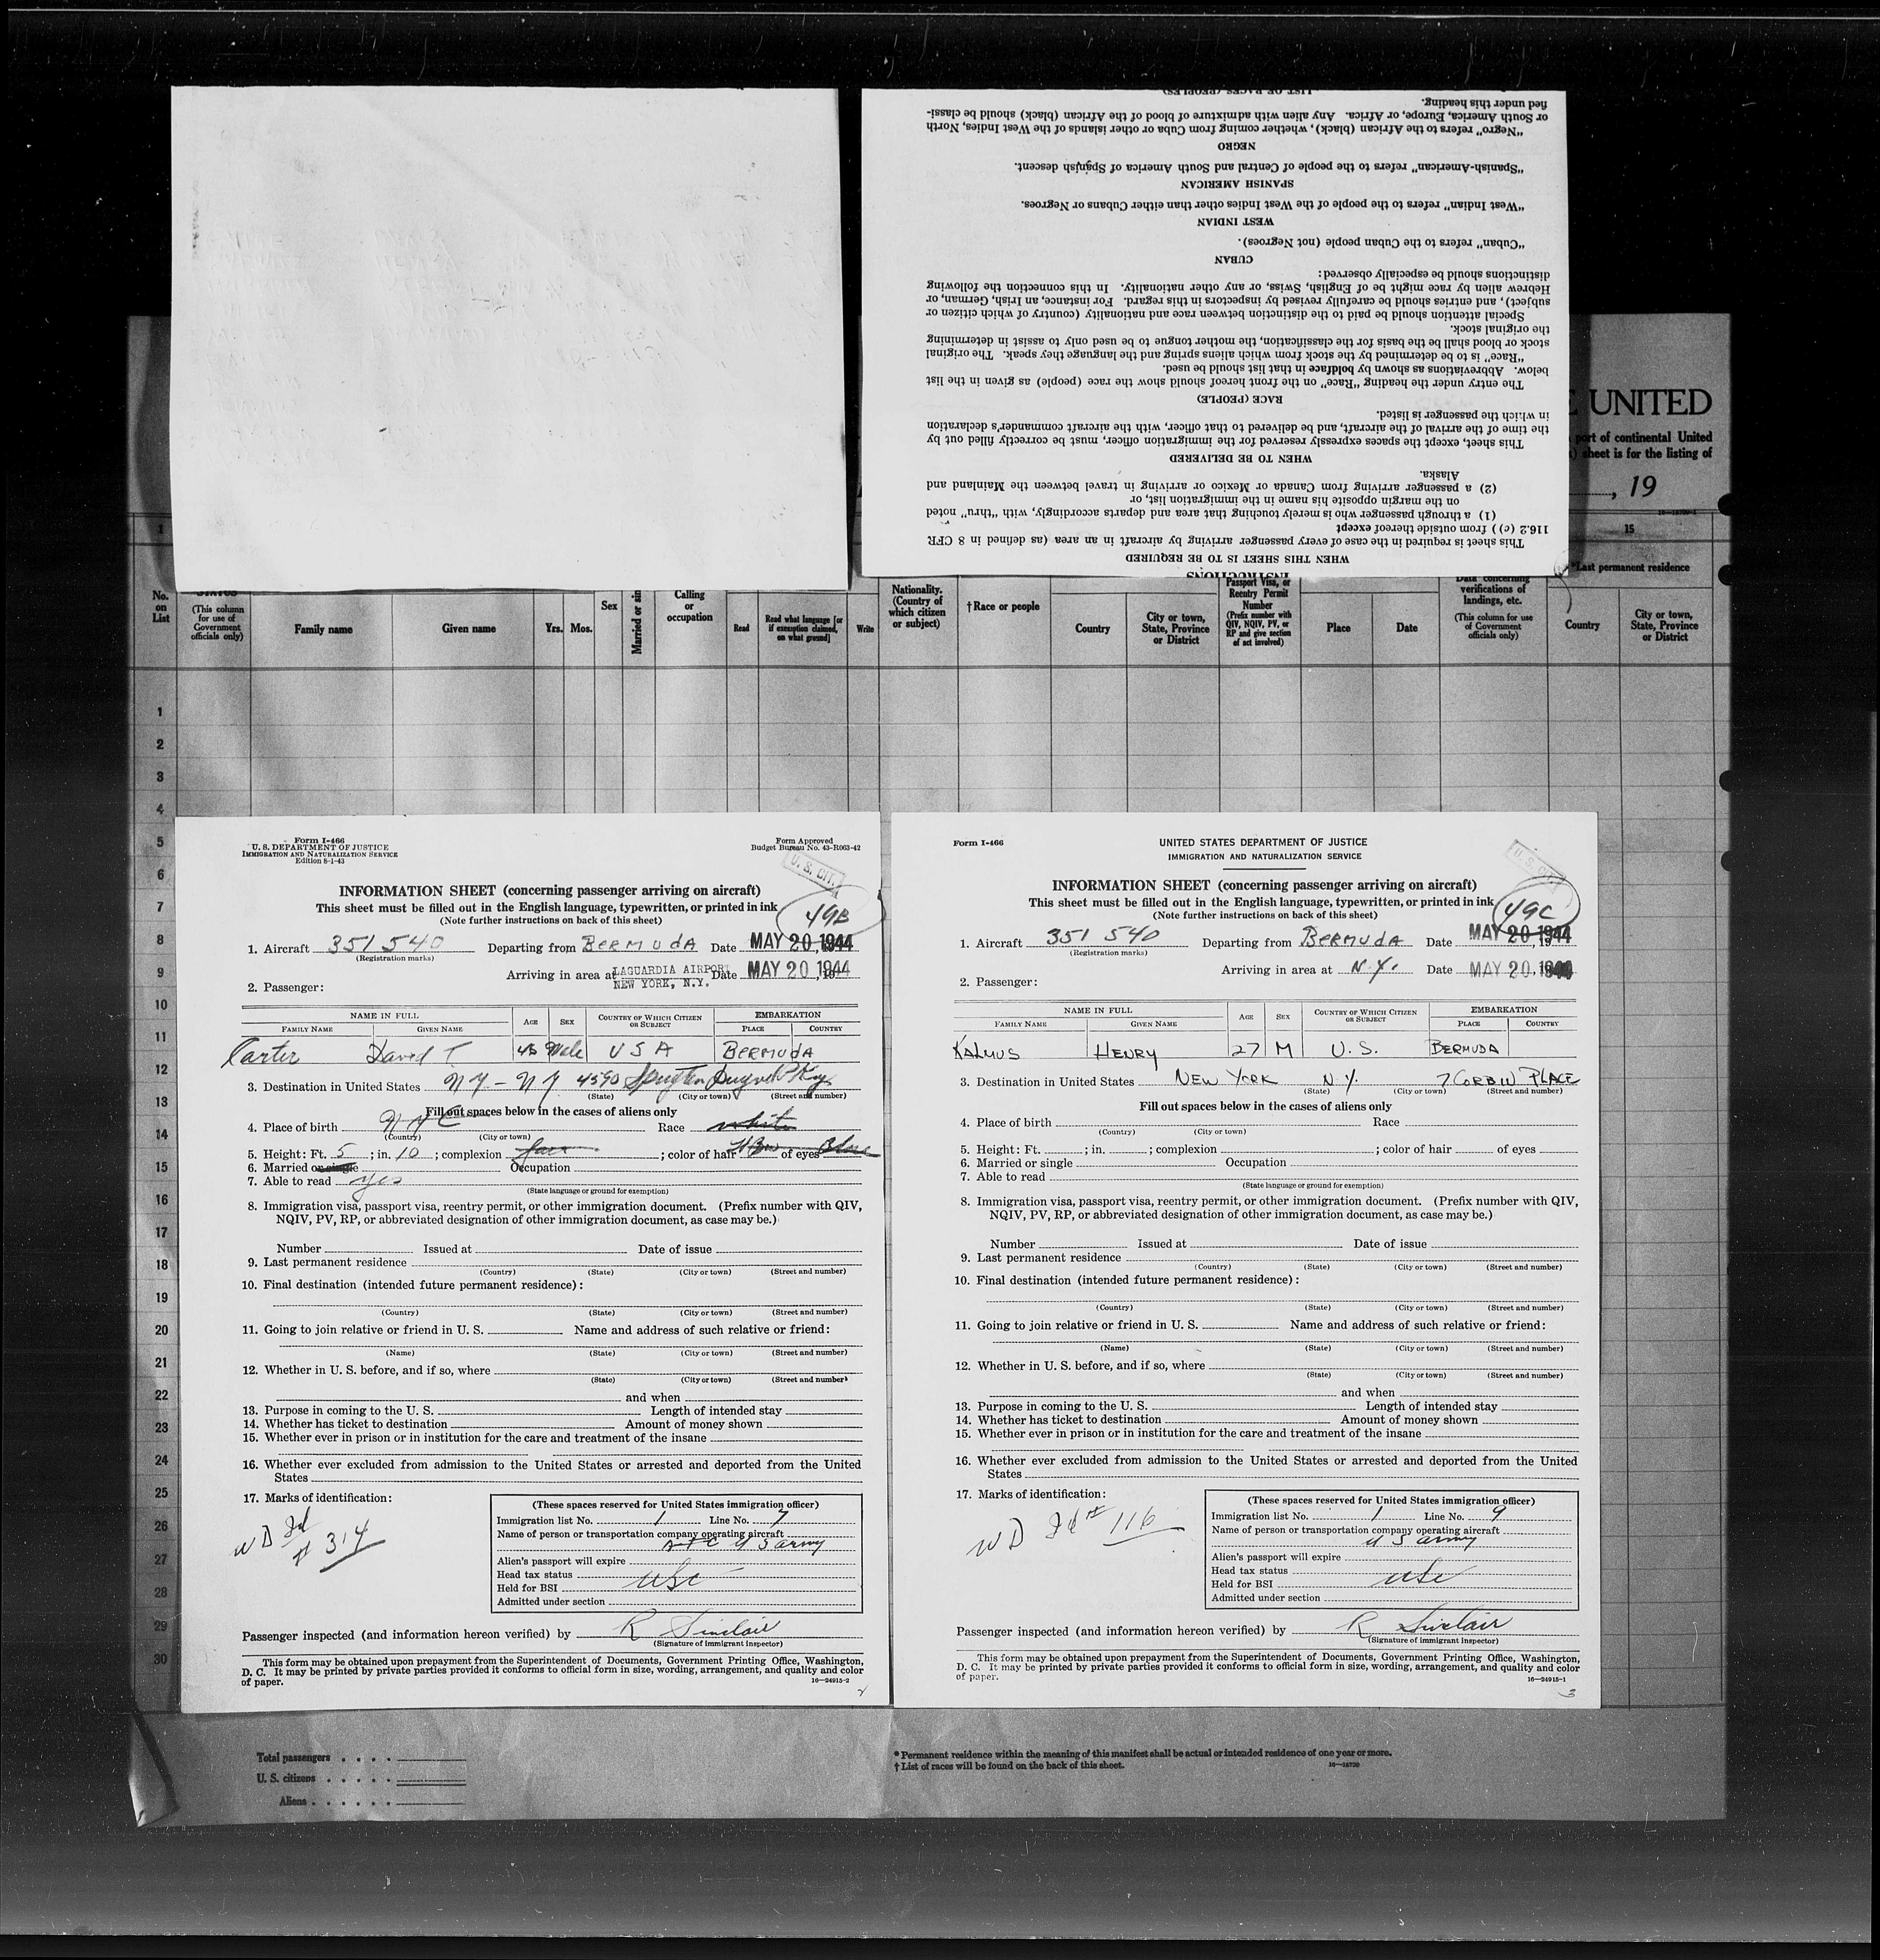 LIST OF RACES (PEOPLES)
fied under this heading.
or South America, Europe, or Africa. Any alien with admixture of blood of the African (black) should be classi-
"Negro" refers to the African (black), whether coming from Cuba or other islands of the West Indies, North
NEGRO
"Spanish-American" refers to the people of Central and South America of Spanish descent.
SPANISH AMERICAN
"West Indian" refers to the people of the West Indies other than either Cubans or Negroes.
WEST INDIAN
"Cuban" refers to the Cuban people (not Negroes).
CUBAN
distinctions should be especially observed:
Hebrew alien by race might be of English, Swiss, or any other nationality. In this connection the following
subject), and entries should be carefully revised by inspectors in this regard. For instance, an Irish, German, or
Special attention should be paid to the distinction between race and nationality (country of which citizen or
the original stock.
stock or blood shall be the basis for the classification, the mother tongue to be used only to assist in determining
"Race" is to be determined by the stock from which aliens spring and the language they speak. The original
below. Abbreviations as shown by boldface in that list should be used.
The entry under the heading "Race" on the front hereof should show the race (people) as given in the list
RACE (PEOPLE)
in which the passenger is listed.
the time of the arrival of the aircraft, and be delivered to that officer, with the aircraft commander's declaration
This sheet, except the spaces expressly reserved for the immigration officer, must be correctly filled out by
WHEN TO BE DELIVERED
Alaska.
(2) a passenger arriving from Canada or Mexico or arriving in travel between the Mainland and
on the margin opposite his name in the immigration list, or
(1) a through passenger who is merely touching that area and departs accordingly, with "thru" noted
116.2 (c)) from outside thereof except
This sheet is required in the case of every passenger arriving by aircraft in an area (as defined in 8 CFR
WHEN THIS SHEET IS TO BE REQUIRED
INSTRUCTIONS
E UNITED
port of continental United
sheet is for the listing of
, 19
1
15
*Last permanent residence
No. on List
STATUS (This column for use of Government officials only)
Family name
Given name
Yrs. Mos.
Sex
Married or sin
Calling or occupation
Read
Read what language [or if exemption claimed, on what ground]
Write
Nationality. (Country of which citizen or subject)
†Race or people
Country
City or town, State, Province or District
Passport Visa, or Reentry Permit Number (Prefix number with QIV, NQIV, PV, or RP and give section of act involved)
Place
Date
Data concerning verifications of landings, etc. (This column for use of Government officials only)
Country
City or town, State, Province or District
1
2
3
4
5
6
7
8
9
10
11
12
13
14
15
16
17
18
19
20
21
22
23
24
25
26
27
28
29
30
Form I-466
U. S. DEPARTMENT OF JUSTICE
IMMIGRATION AND NATURALIZATION SERVICE
Edition 8-1-43
Form Approved
Budget Bureau No. 43-R063-42
U. S. CIT.
INFORMATION SHEET (concerning passenger arriving on aircraft)
This sheet must be filled out in the English language, typewritten, or printed in ink
(Note further instructions on back of this sheet)
49B
1. Aircraft 351540 Departing from BERMUDA Date MAY 20, 1944
(Registration marks)
Arriving in area at LAGUARDIA AIRPORT NEW YORK, N.Y. Date MAY 20, 1944
2. Passenger:
NAME IN FULL AGE SEX COUNTRY OF WHICH CITIZEN OR SUBJECT EMBARKATION
FAMILY NAME GIVEN NAME PLACE COUNTRY
Carter David T 45 Male USA BERMUDA
3. Destination in United States NY - NY 4590
(State) (City or town) (Street and number)
Fill out spaces below in the cases of aliens only
4. Place of birth NYC Race white
(Country) (City or town)
5. Height: Ft. 5; in. 10; complexion fair; color of hair of eyes Blue
6. Married or single Occupation
7. Able to read yes
(State language or ground for exemption)
8. Immigration visa, passport visa, reentry permit, or other immigration document. (Prefix number with QIV,
NQIV, PV, RP, or abbreviated designation of other immigration document, as case may be.)
Number Issued at Date of issue
9. Last permanent residence
(Country) (State) (City or town) (Street and number)
10. Final destination (intended future permanent residence):
(Country) (State) (City or town) (Street and number)
11. Going to join relative or friend in U. S. Name and address of such relative or friend:
(Name) (State) (City or town) (Street and number)
12. Whether in U. S. before, and if so, where
(State) (City or town) (Street and number)
and when
13. Purpose in coming to the U. S. Length of intended stay
14. Whether has ticket to destination Amount of money shown
15. Whether ever in prison or in institution for the care and treatment of the insane
16. Whether ever excluded from admission to the United States or arrested and deported from the United
States
17. Marks of identification:
WD Id # 314
(These spaces reserved for United States immigration officer)
Immigration list No. 1 Line No. 7
Name of person or transportation company operating aircraft
ATC US army
Alien's passport will expire
Head tax status USC
Held for BSI
Admitted under section
Passenger inspected (and information hereon verified) by R Sinclair
(Signature of immigrant inspector)
This form may be obtained upon prepayment from the Superintendent of Documents, Government Printing Office, Washington,
D. C. It may be printed by private parties provided it conforms to official form in size, wording, arrangement, and quality and color
of paper. 16—24915-2
2
Form I-466
UNITED STATES DEPARTMENT OF JUSTICE
IMMIGRATION AND NATURALIZATION SERVICE
U. S. CIT.
INFORMATION SHEET (concerning passenger arriving on aircraft)
This sheet must be filled out in the English language, typewritten, or printed in ink
(Note further instructions on back of this sheet)
49C
1. Aircraft 351 540 Departing from BERMUDA Date MAY 20, 1944
(Registration marks)
Arriving in area at N.Y. Date MAY 20, 1944
2. Passenger:
NAME IN FULL AGE SEX COUNTRY OF WHICH CITIZEN OR SUBJECT EMBARKATION
FAMILY NAME GIVEN NAME PLACE COUNTRY
KALMUS HENRY 27 M U.S. BERMUDA
3. Destination in United States NEW YORK N.Y. 7 CORBIN PLACE
(State) (City or town) (Street and number)
Fill out spaces below in the cases of aliens only
4. Place of birth Race
(Country) (City or town)
5. Height: Ft. ; in. ; complexion ; color of hair of eyes
6. Married or single Occupation
7. Able to read
(State language or ground for exemption)
8. Immigration visa, passport visa, reentry permit, or other immigration document. (Prefix number with QIV,
NQIV, PV, RP, or abbreviated designation of other immigration document, as case may be.)
Number Issued at Date of issue
9. Last permanent residence
(Country) (State) (City or town) (Street and number)
10. Final destination (intended future permanent residence):
(Country) (State) (City or town) (Street and number)
11. Going to join relative or friend in U. S. Name and address of such relative or friend:
(Name) (State) (City or town) (Street and number)
12. Whether in U. S. before, and if so, where
(State) (City or town) (Street and number)
and when
13. Purpose in coming to the U. S. Length of intended stay
14. Whether has ticket to destination Amount of money shown
15. Whether ever in prison or in institution for the care and treatment of the insane
16. Whether ever excluded from admission to the United States or arrested and deported from the United
States
17. Marks of identification:
WD Id # 116
(These spaces reserved for United States immigration officer)
Immigration list No. 1 Line No. 9
Name of person or transportation company operating aircraft
US army
Alien's passport will expire
Head tax status
Held for BSI USC
Admitted under section
Passenger inspected (and information hereon verified) by R Sinclair
(Signature of immigrant inspector)
This form may be obtained upon prepayment from the Superintendent of Documents, Government Printing Office, Washington,
D. C. It may be printed by private parties provided it conforms to official form in size, wording, arrangement, and quality and color
of paper. 16—24915-1
3
Total passengers . . . .
U. S. citizens . . . . .
Aliens . . . . . .
* Permanent residence within the meaning of this manifest shall be actual or intended residence of one year or more.
† List of races will be found on the back of this sheet.